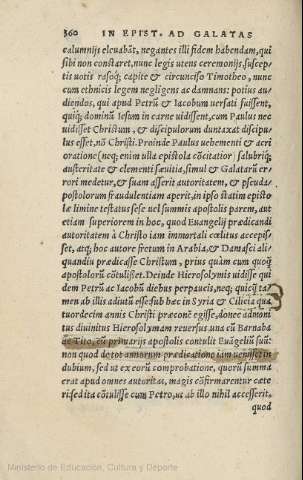 360 IN EPIST. AD GALATAS
calumnijs eleuabāt, negantes illi fidem habendam, qui
sibi non constaret, nunc legis utens ceremonijs, suscep-
tis uotis rasoq; capite & circunciso Timotheo, nunc
cum ethnicis legem negligens ac damnans: potius au-
diendos, qui apud Petrū & Iacobum uersati fuissent,
quiq; dominū Iesum in carne uidissent, cum Paulus nec
uidisset Christum, & discipulorum duntaxat discipu-
lus esset, nō Christi. Proinde Paulus uehementi & acri
oratione (neq; enim ulla epistola cōcitatior) salubriq;
austeritate & clementi sæuitia, simul & Galatarū er-
rori medetur, & suam asserit autoritatem, & pseuda-
postolorum fraudulentiam aperit, in ipso statim episto
læ limine testatus sese uel summis apostolis parem, aut
etiam superiorem in hoc, quod Euangelij prædicandi
autoritatem à Christo iam immortali cœlitus accepis-
set, atq; hoc autore fretum in Arabia, & Damasci ali-
quandiu prædicasse Christum, prius quàm cum quoq̃
apostolorū cōtulisset. Deinde Hierosolymis uidisse qui
dem Petrū ac Iacobū diebus perpaucis, neq; quicq̃ ta-
men ab illis adiutū esse: sub hæc in Syria & Cilicia qua
tuordecim annis Christi præconē egisse, donec admoni
tus diuinitus Hierosolymam reuersus una cū Barnaba
ac Tito, cū primarijs apostolis contulit Euāgeliū suū:
non quod de tot annorum prædicatione iam uenisset in
dubium, sed ut ex eorū comprobatione, quorū summa
erat apud omnes autoritas, magis cōfirmarentur cæte
ri. sed ita cōtulisse cum Petro, ut ab illo nihil accesserit,
quod
Ministerio de Educación, Cultura y Deporte